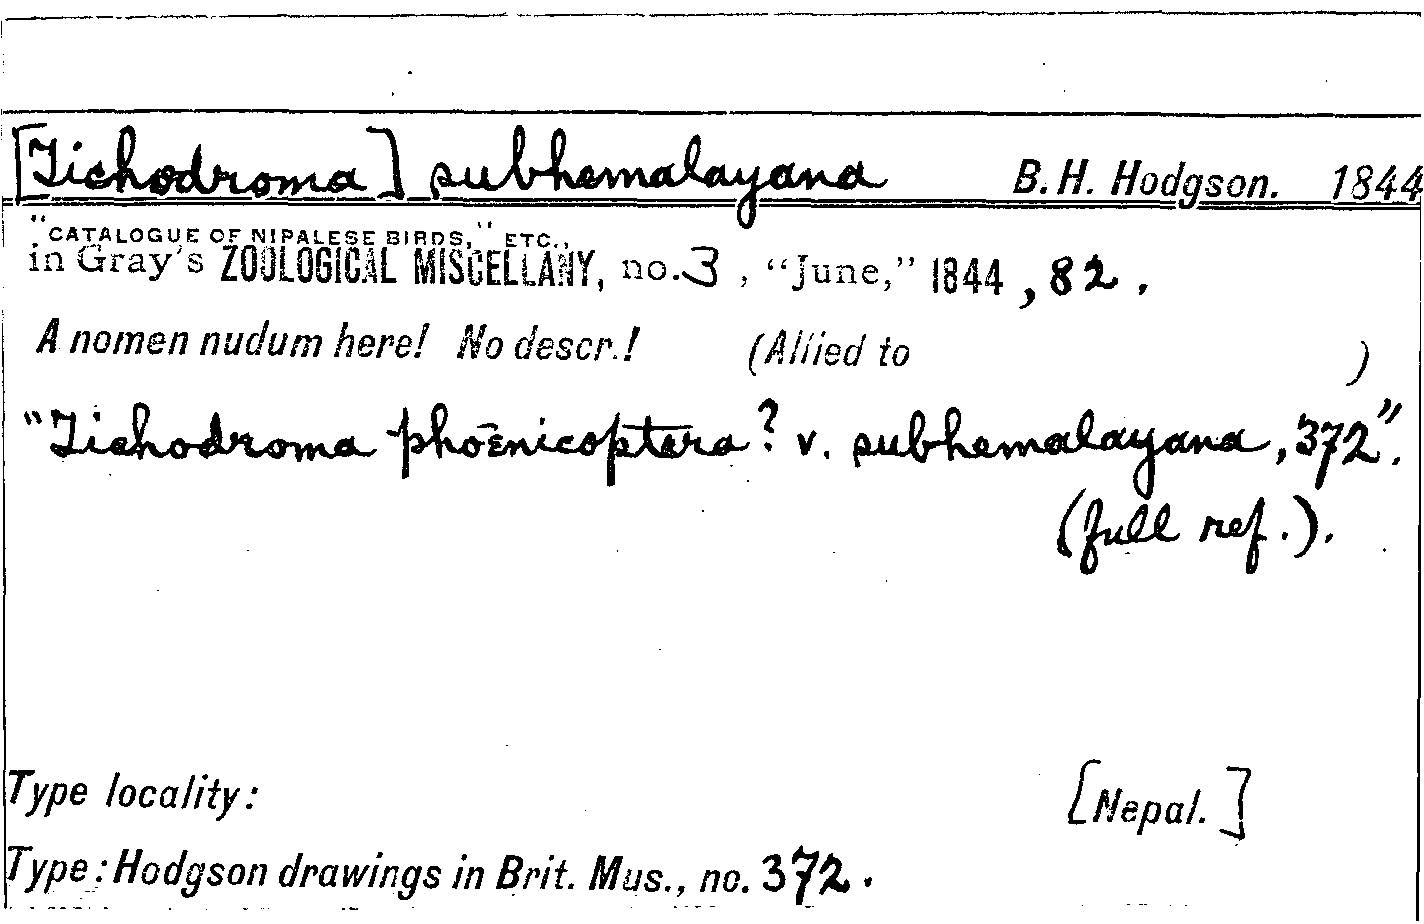 [Tichodroma] subhemalayana B. H. Hodgson. 1844
"CATALOGUE OF NIPALESE BIRDS," ETC.,
in Gray's ZOOLOGICAL MISCELLANY, no. 3, "June," 1844, 82.
A nomen nudum here! No descr.! (Allied to )
"Tichodroma phoenicoptera? v. subhemalayana, 372".
(full ref.).
Type locality: [Nepal.]
Type: Hodgson drawings in Brit. Mus., no. 372.